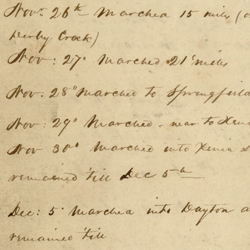 Nov. 26th Marched 15 miles (
Derby Creek)
Nov: 27th Marched 21 miles
Nov. 28th Marched to Springfield
Nov. 29th Marched near to Xenia
Nov 30th Marched into Xenia &
remained till Dec 5th
Dec: 5th Marched into Dayton a
remained till